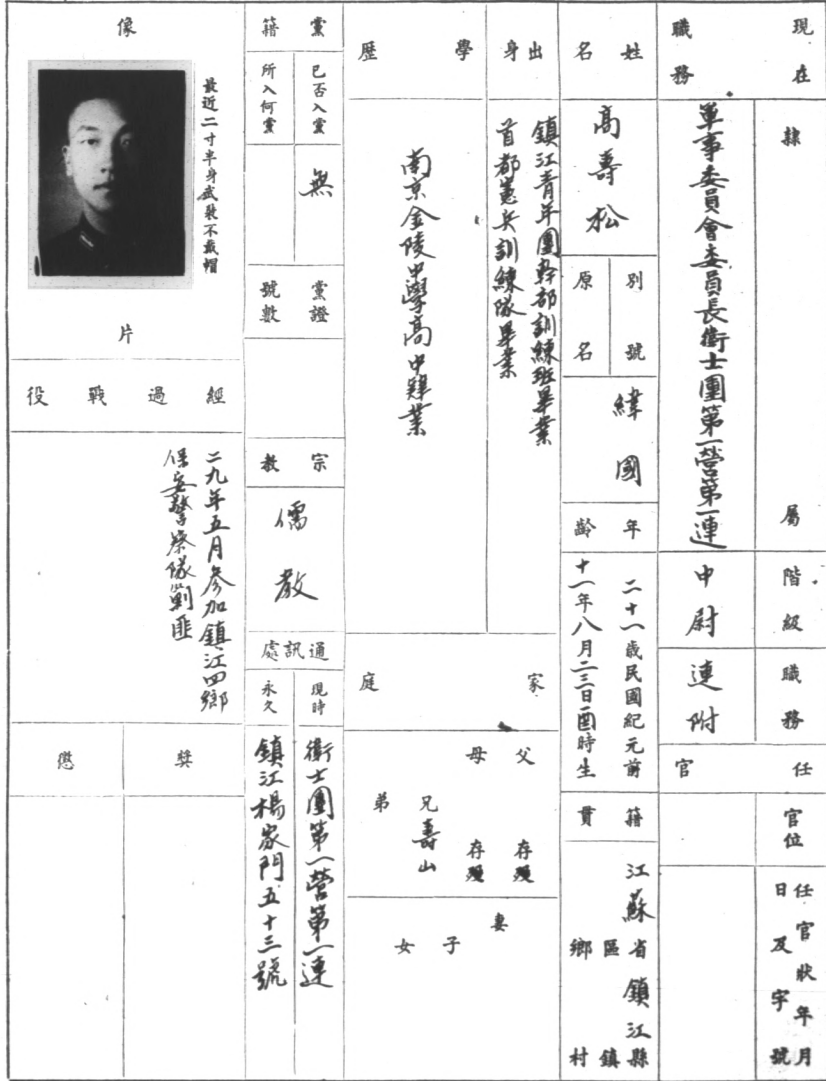 現在職務
隸屬
軍事委員會委員長衛士團第一營第一連
階級
中尉
職務
連附
任官
官位
任官狀年月日及字號
姓名
高壽松
別號
原名
緯國
年齡
二十一歲民國紀元前
十一年八月二三日酉時生
籍貫
江蘇省鎮江縣
區鎮
鄉村
出身
鎮江青年團幹部訓練班畢業
首都憲兵訓練隊畢業
學歷
南京金陵中學高中肄業
家庭
父存歿
母存歿
兄壽山
弟
妻
子
女
黨籍
已否入黨
所入何黨
無
黨證號數
宗教
儒教
通訊處
現時
衛士團第一營第一連
永久
鎮江楊家門五十三號
像片
最近二寸半身武裝不戴帽
經過戰役
二九年五月參加鎮江四鄉
保安警察隊剿匪
獎
懲